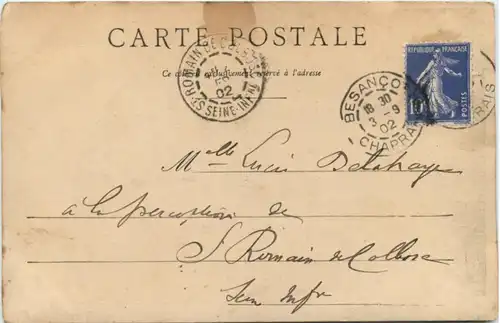 CARTE POSTALE
Ce côté est exclusivement réservé à l'adresse
ROMAIN DE COLBOSC
02
SEINE-INFRE
REPUBLIQUE FRANÇAISE
10
POSTES
BESANÇON
18 30
3 - 9
02
CHAPRAIS
RAIS
Melle Lucie Delahaye
à la perception de
St Romain de Colbosc
Sein Infre